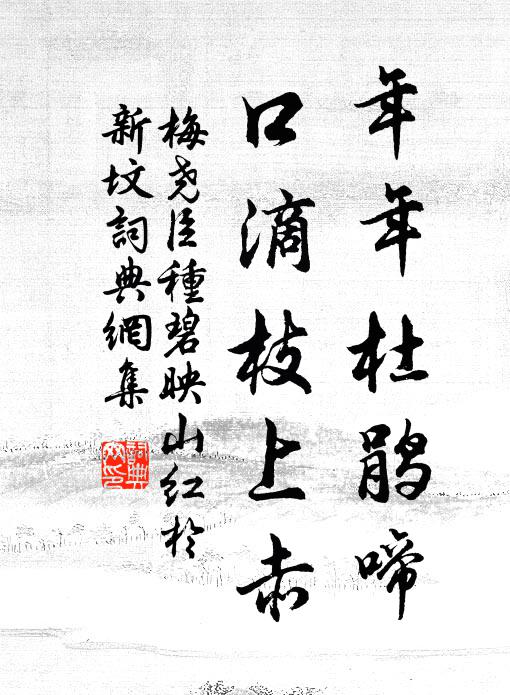 年年杜鹃啼
口滴枝上赤
梅尧臣種碧映山红於
新坟詞典網集
詞典